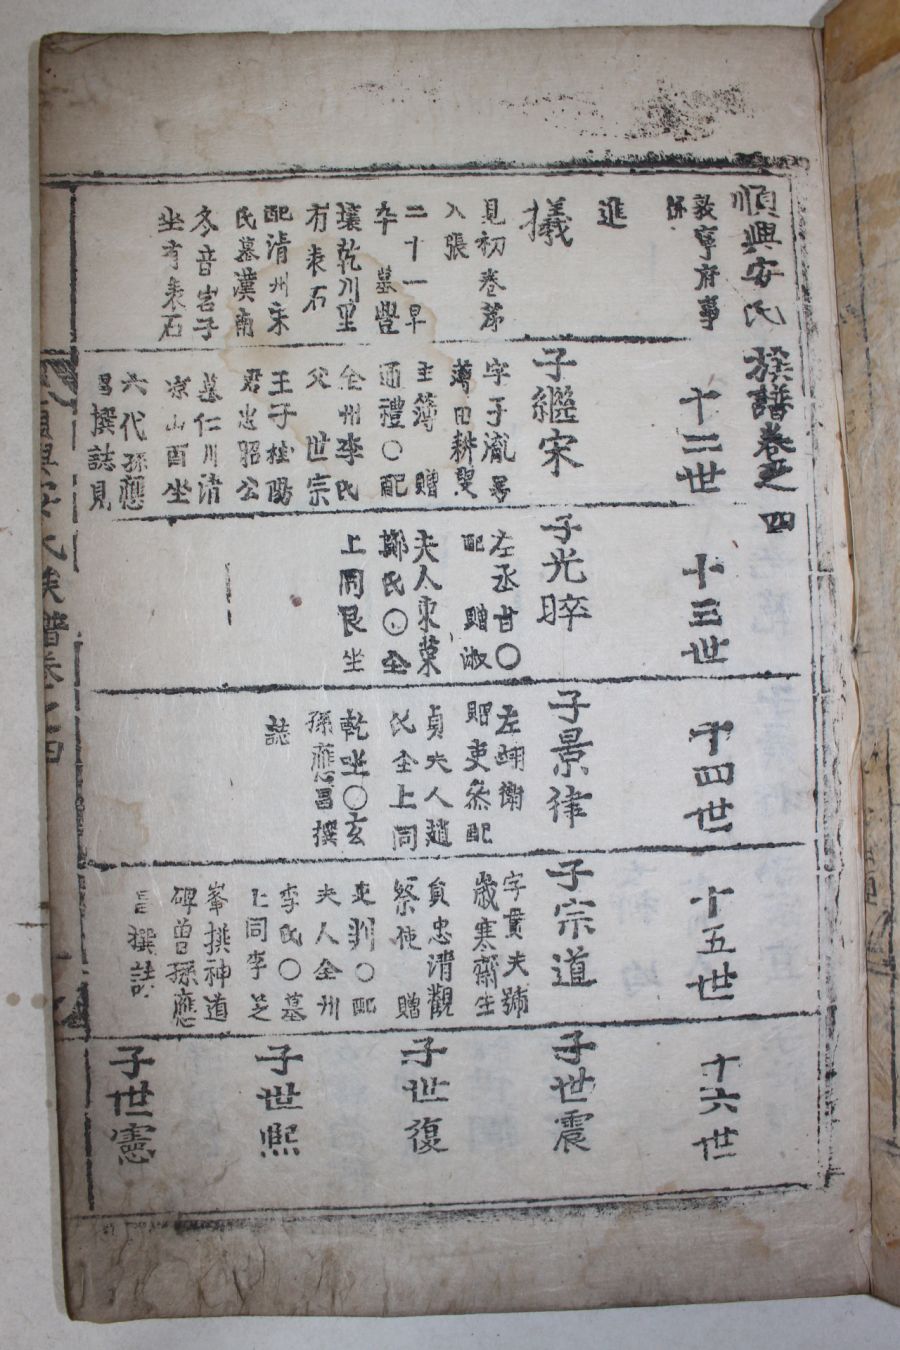 順興安氏族譜卷之四
敦寧府事
進
十二世
十三世
十四世
十五世
十六世
見初卷第
入張
二十一早
卒 墓豐
壤乾川里
有表石
配清州宋
氏墓漢南
冬音岩子
坐有表石
子繼宋
字子胤號
主簿 贈
通禮○配
全州李氏
父 世宗
王子桂陽
君忠昭公
墓仁川清
凉山酉坐
六代孫應
昌撰誌見
子光晬
左丞 ○
配 贈淑
夫人東萊
鄭氏○仝
上同艮坐
子景律
左 衛
贈吏參配
貞夫人趙
氏仝上同
乾坐○玄
孫應昌撰
誌
子宗道
字貫夫號
歲寒齋生
負忠清觀
察使 贈
吏判○配
夫人全州
李氏○墓
上同李芝
峯撰神道
碑曾孫應
昌撰誌
子世震
子世復
子世熙
子世憲